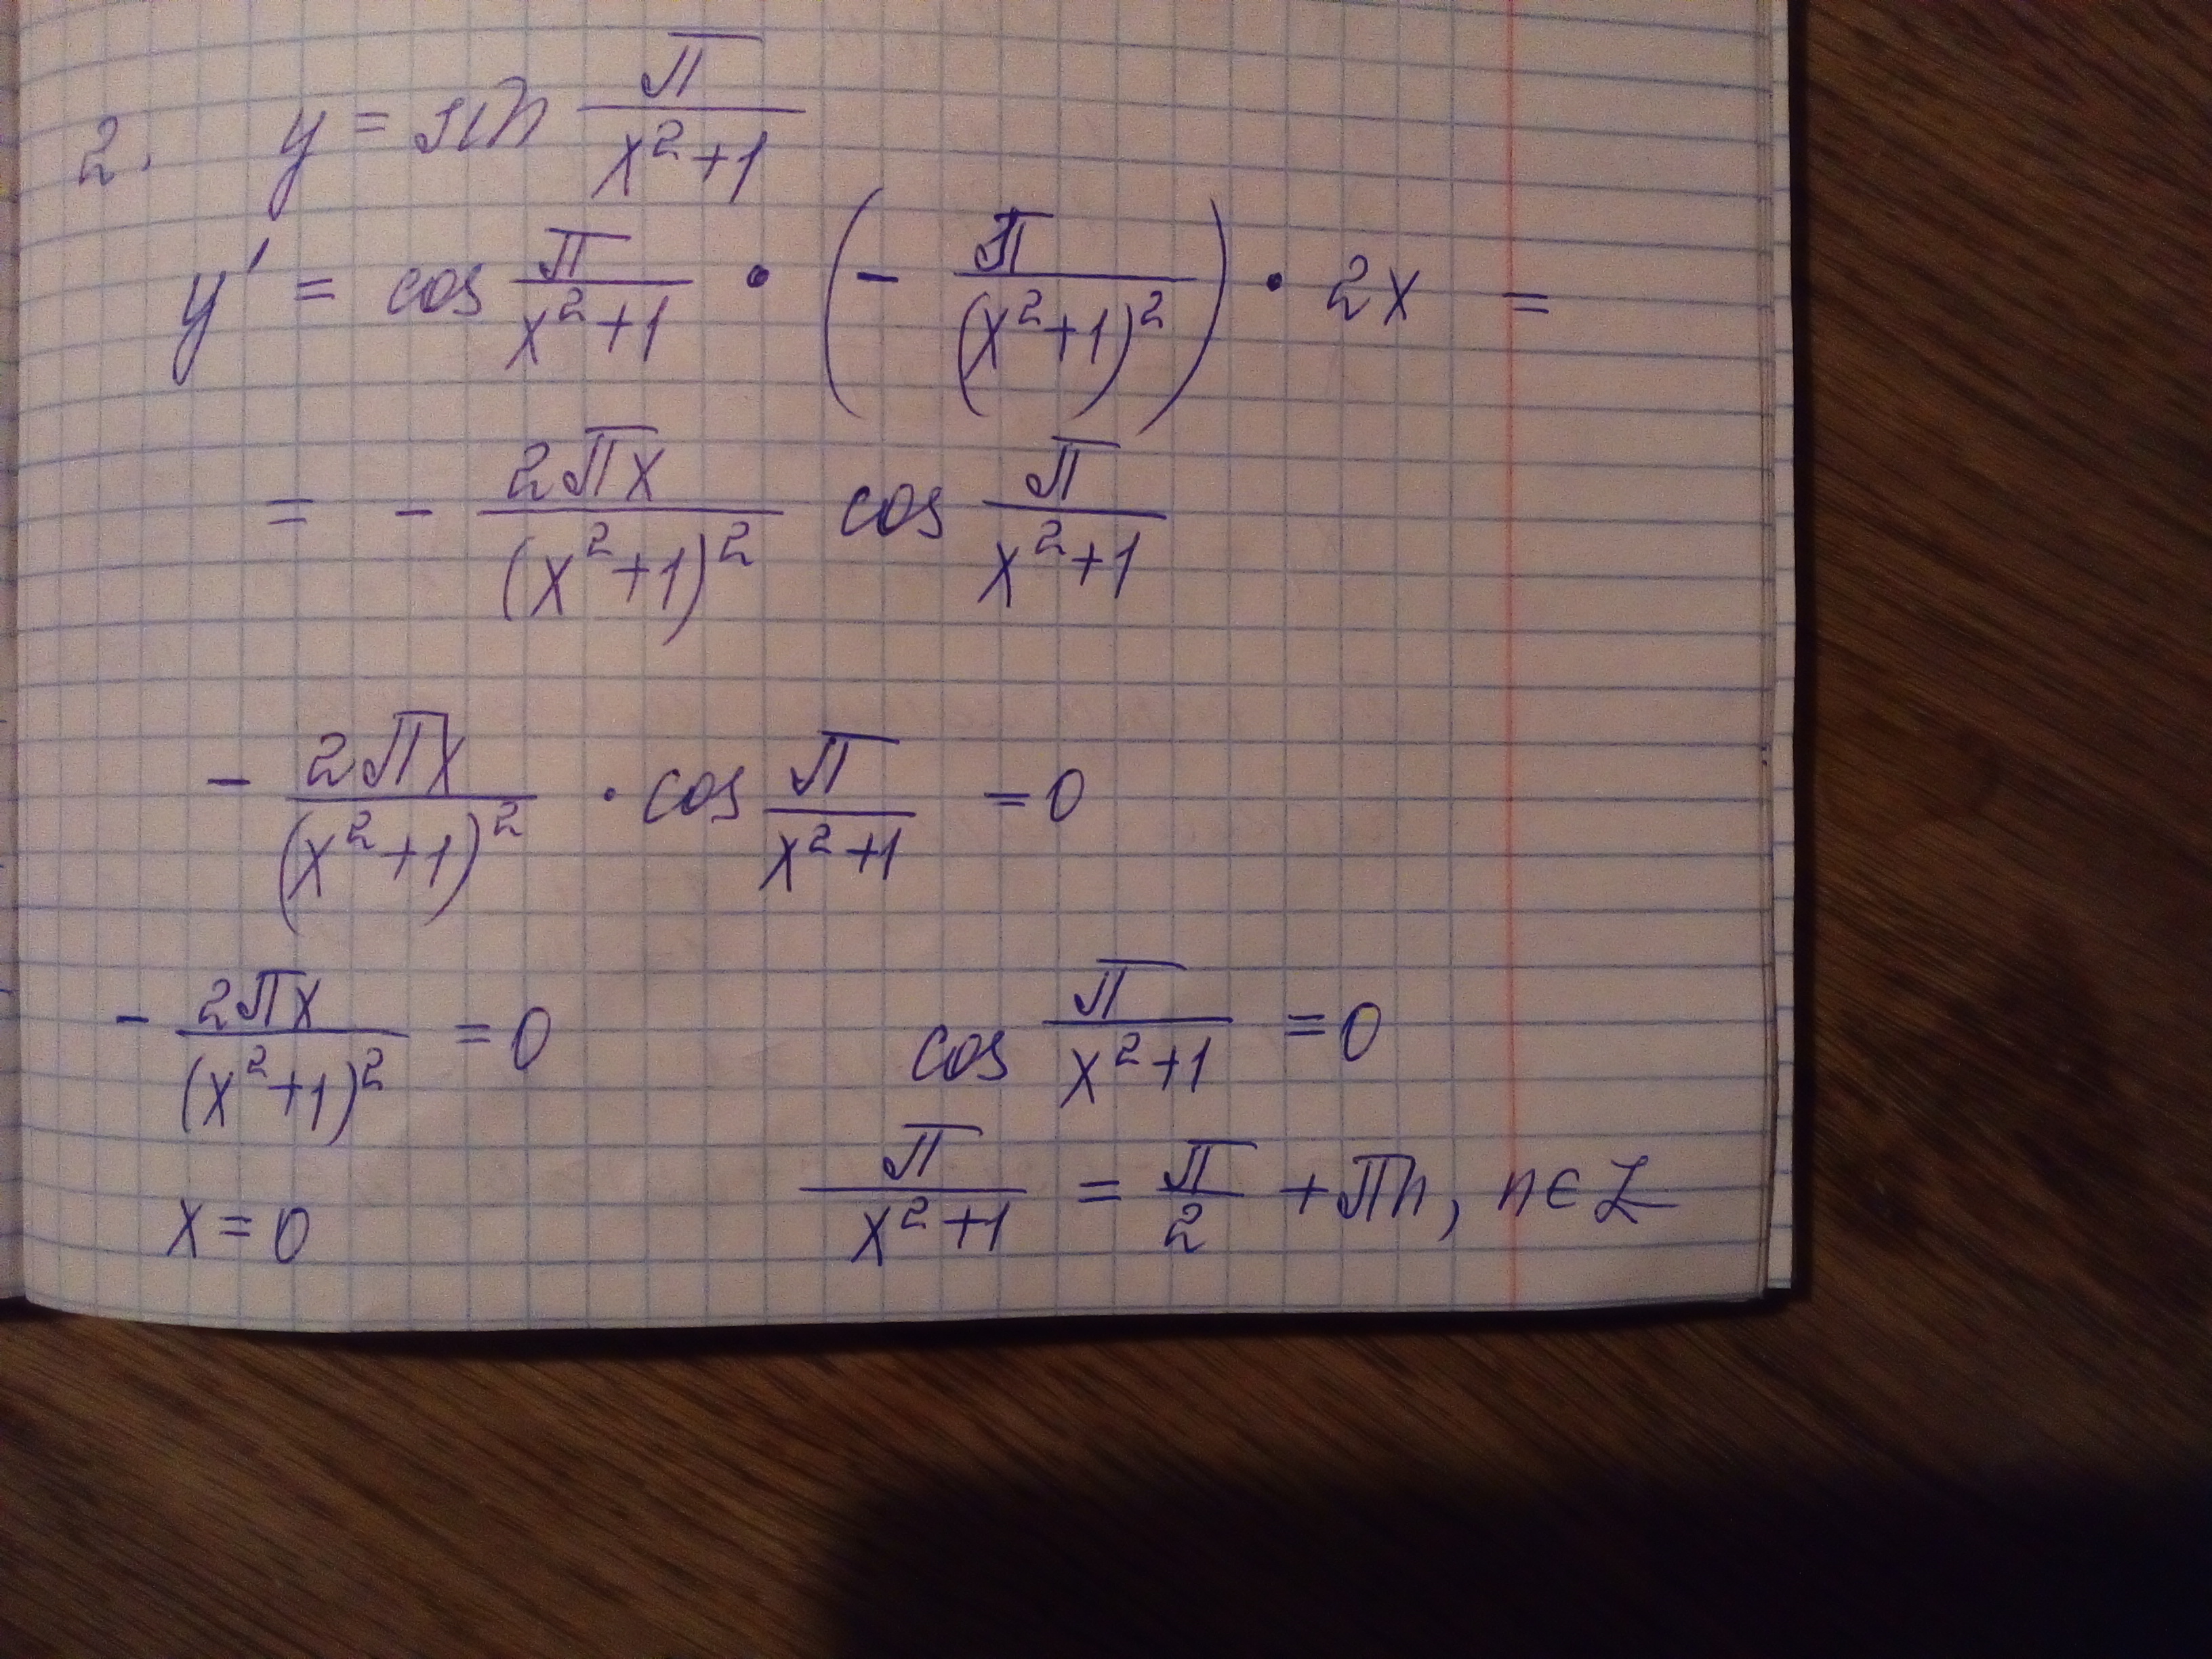 2. y = sin π/(x²+1)
y' = cos π/(x²+1) • (- π/(x²+1)²) • 2x =
= - 2πx/(x²+1)² cos π/(x²+1)
- 2πx/(x²+1)² · cos π/(x²+1) = 0
- 2πx/(x²+1)² = 0 cos π/(x²+1) = 0
x = 0 π/(x²+1) = π/2 + πn, n ∈ Z